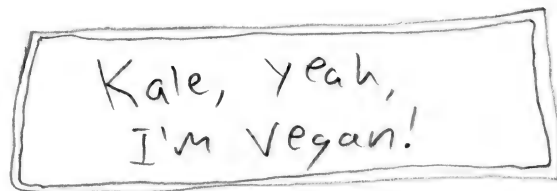 Kale, yeah,
I'm vegan!